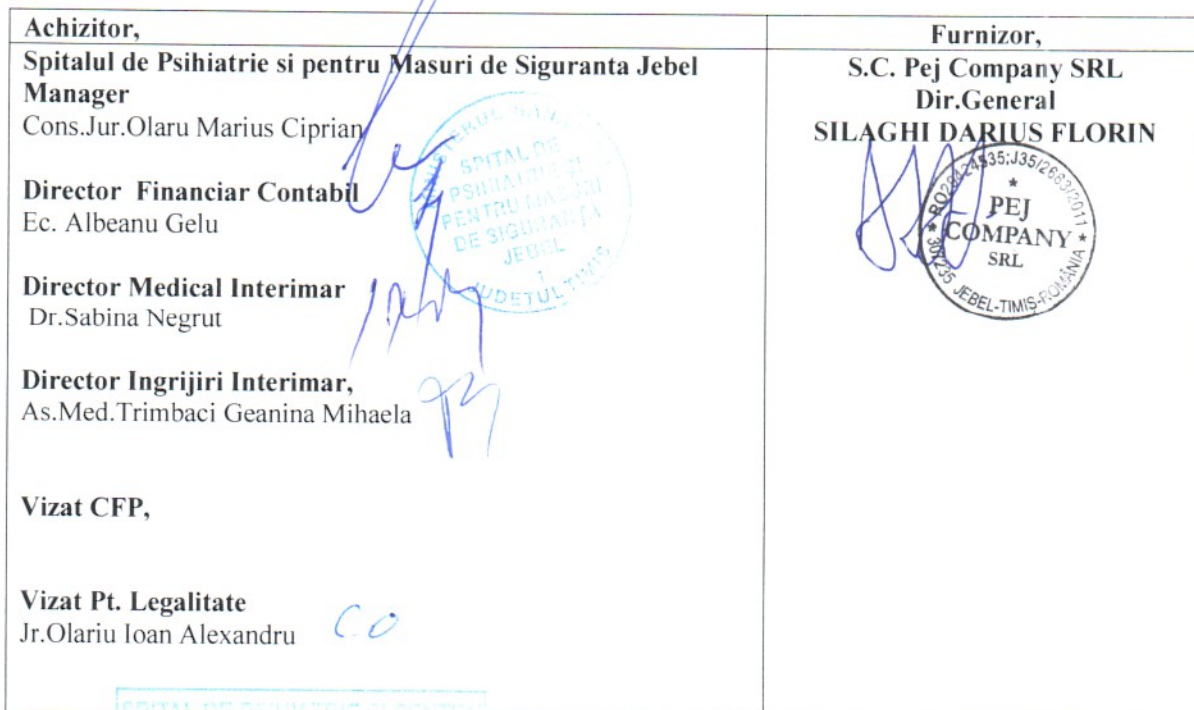 Achizitor,
Spitalul de Psihiatrie si pentru Masuri de Siguranta Jebel
Manager
Cons.Jur.Olaru Marius Ciprian
Director Financiar Contabil
Ec. Albeanu Gelu
Director Medical Interimar
Dr.Sabina Negrut
Director Ingrijiri Interimar,
As.Med.Trimbaci Geanina Mihaela
Vizat CFP,
Vizat Pt. Legalitate
Jr.Olariu Ioan Alexandru
C.O
SPITAL DE
PSIHIATRIE ȘI
PENTRU MĂSURI
DE SIGURANȚA
JEBEL
JUDEȚUL TIMIȘ
Furnizor,
S.C. Pej Company SRL
Dir.General
SILAGHI DARIUS FLORIN
J35/2663/2011
PEJ
COMPANY
SRL
307235 JEBEL-TIMIȘ-ROMÂNIA